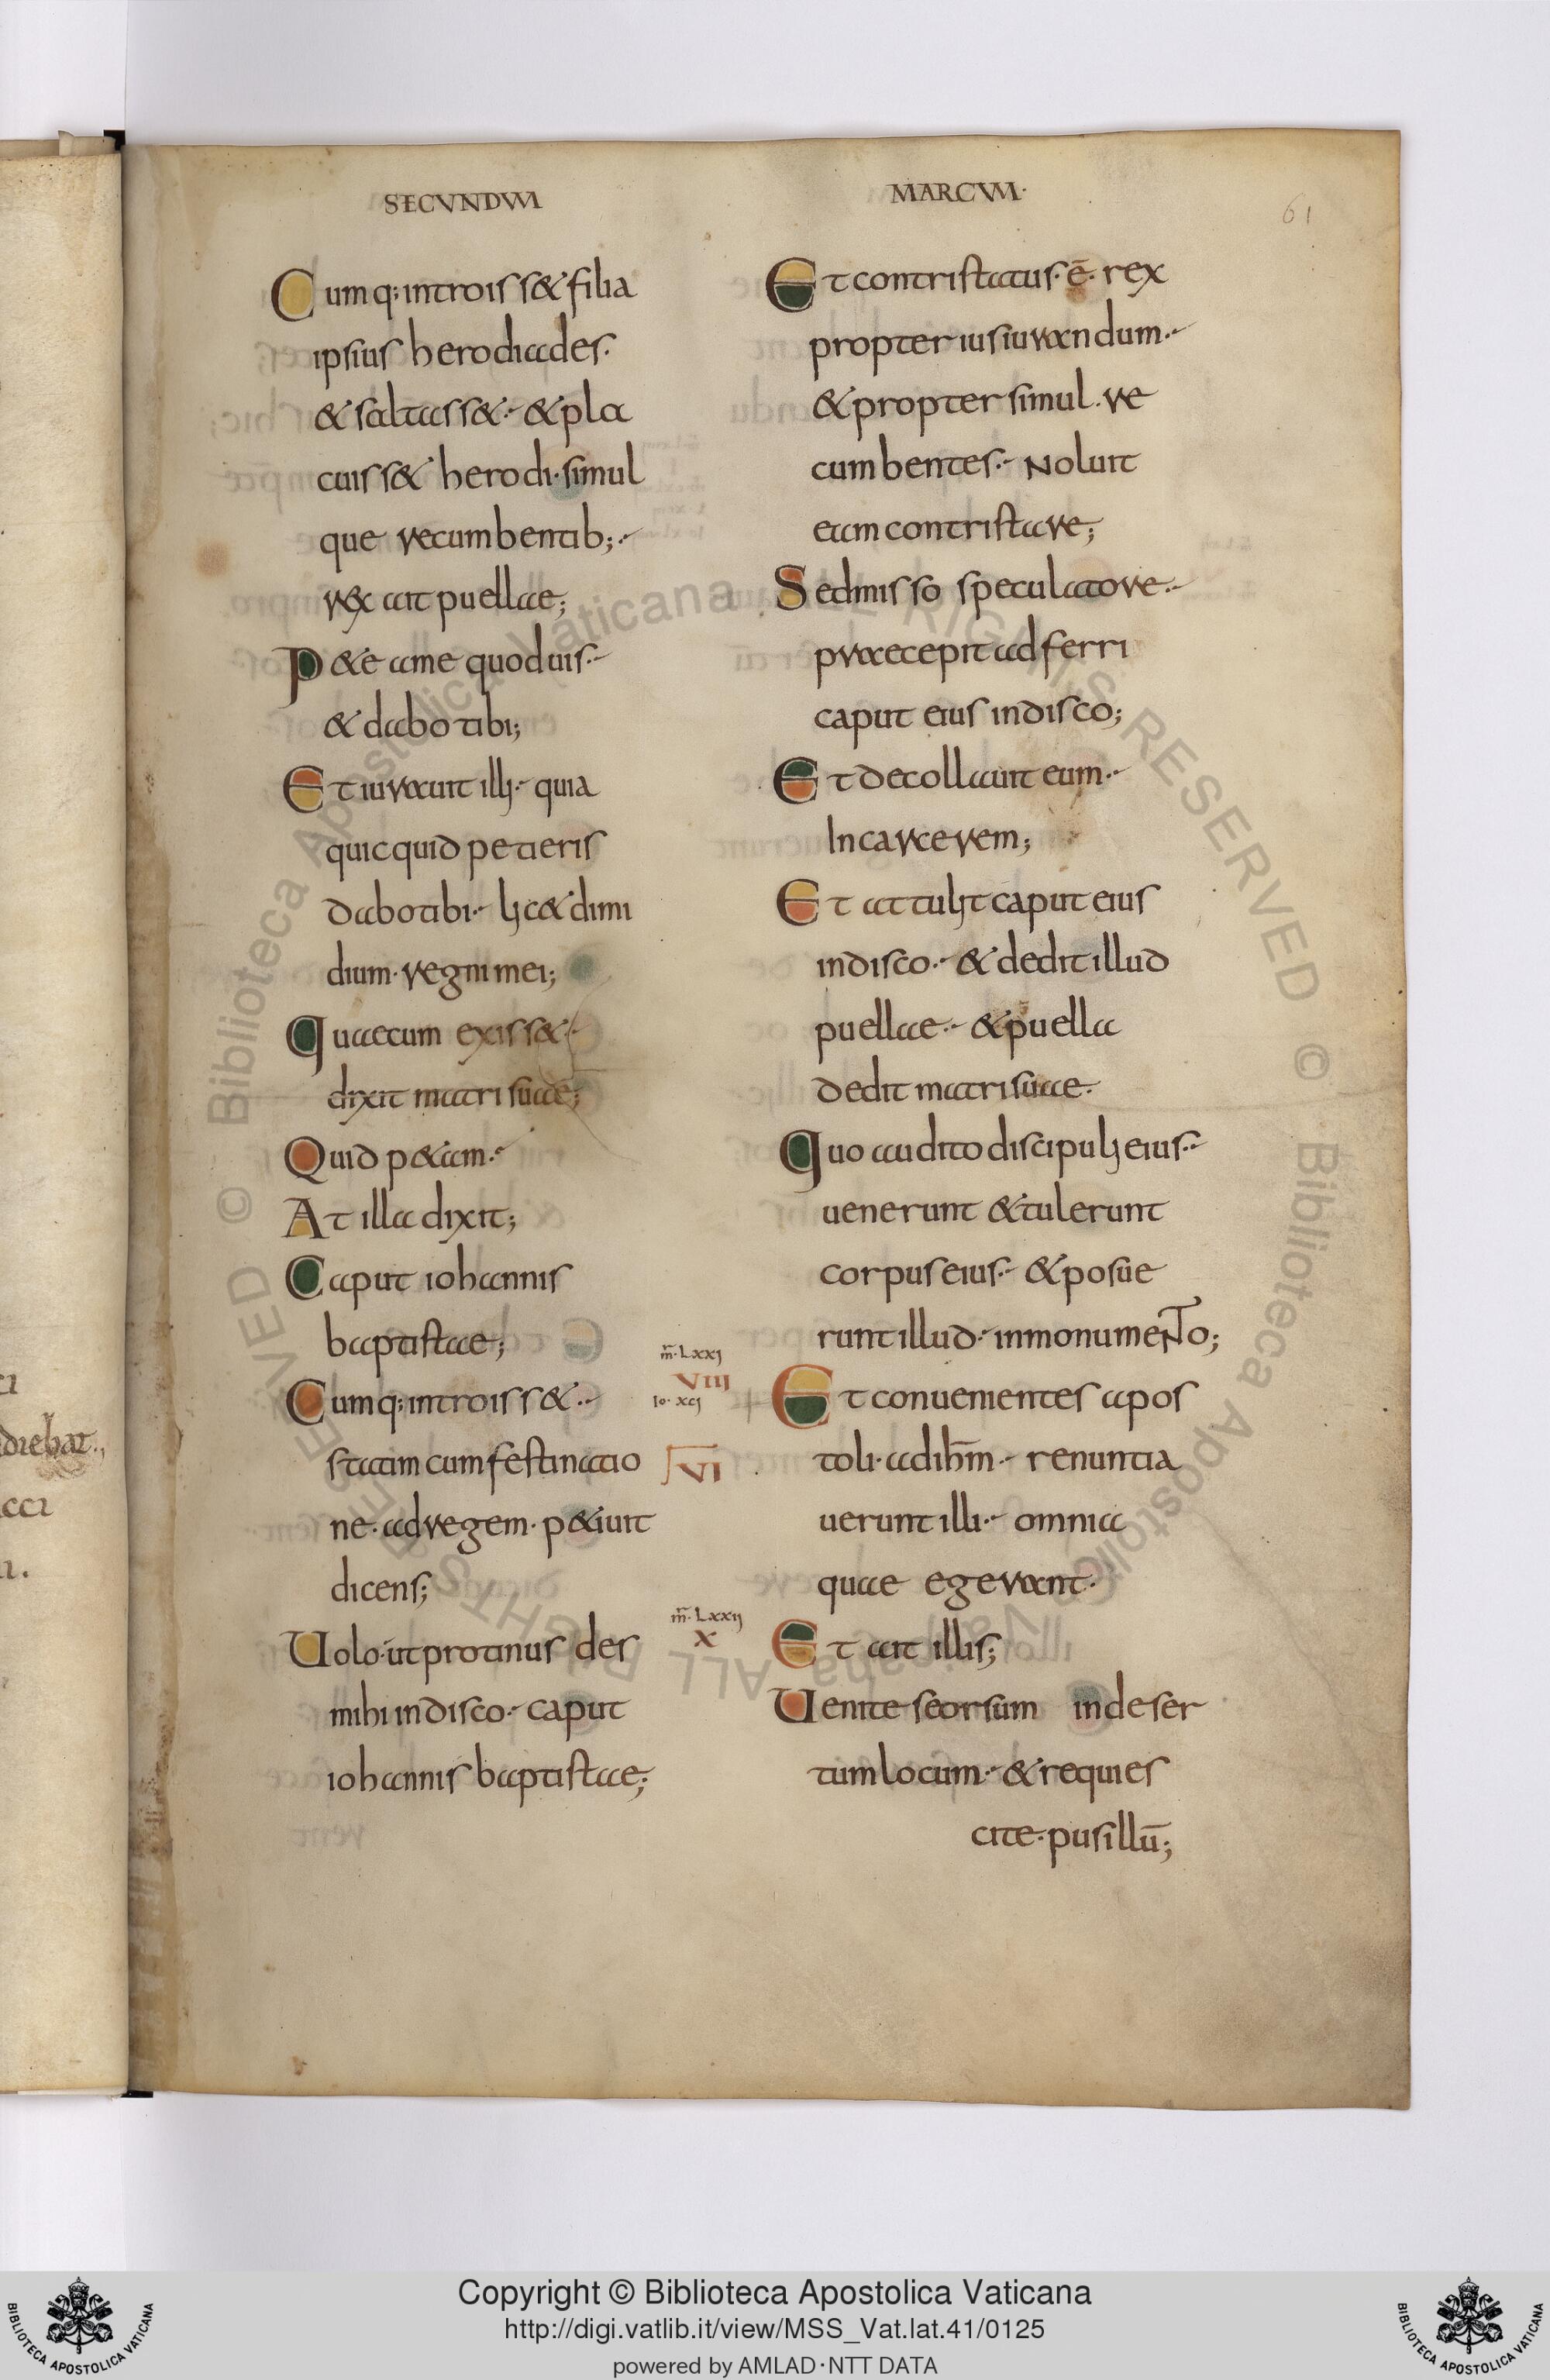 SECVNDVM
MARCVM·
61
Cumq;introiss& filia
ipsius herodiades.
& saltass&·- & pla
cuiss& herodi·simul
que recumbentib;·-
rex ait puellae;
P&e a me quod uis·-
& dabo tibi;
Et iurauit illi·- quia
quicquid petieris
dabo tibi·- lic& dimi
dium·regni mei;
Quae cum exiss&·-
dixit matri suae;
Quid p&am·-
At illa dixit;
Caput iohannis
baptistae;
Cumq;introiss&·-
statim cum festinatio
ne·ad regem·p&iuit
dicens;
Uolo·ut protinus des
mihi in disco·- caput
iohannis baptistae;
Et contristatus·ē·rex
propter iusiurandum·-
& propter simul·re
cumbentes·- Noluit
eam contristare;
Sed misso speculatore·-
praecepit adferri
caput eius in disco;
Et decollauit eum·-
In carcerem;
Et attulit caput eius
in disco·- & dedit illud
puellae·- & puella
dedit matri suae·
Quo audito discipuli eius·-
uenerunt & tulerunt
corpus eius·- & posue
runt illud·- in monumeNTo;
m̄·Lxxi
VIII
Io·xci
VI
Et conuenientes apos
toli·ad ih̄m·- renuntia
uerunt illi·- omnia
quae egerant·
m̄·Lxxii
X
Et ait illis;
Uenite seorsum in deser
tum locum·- & requies
cite·pusillū;
© Biblioteca Apostolica Vaticana ALL RIGHTS RESERVED © Biblioteca Apostolica Vaticana ALL RIGHTS RESERVED
Copyright © Biblioteca Apostolica Vaticana
http://digi.vatlib.it/view/MSS_Vat.lat.41/0125
powered by AMLAD·NTT DATA
BIBLIOTECA APOSTOLICA VATICANA
BIBLIOTECA APOSTOLICA VATICANA